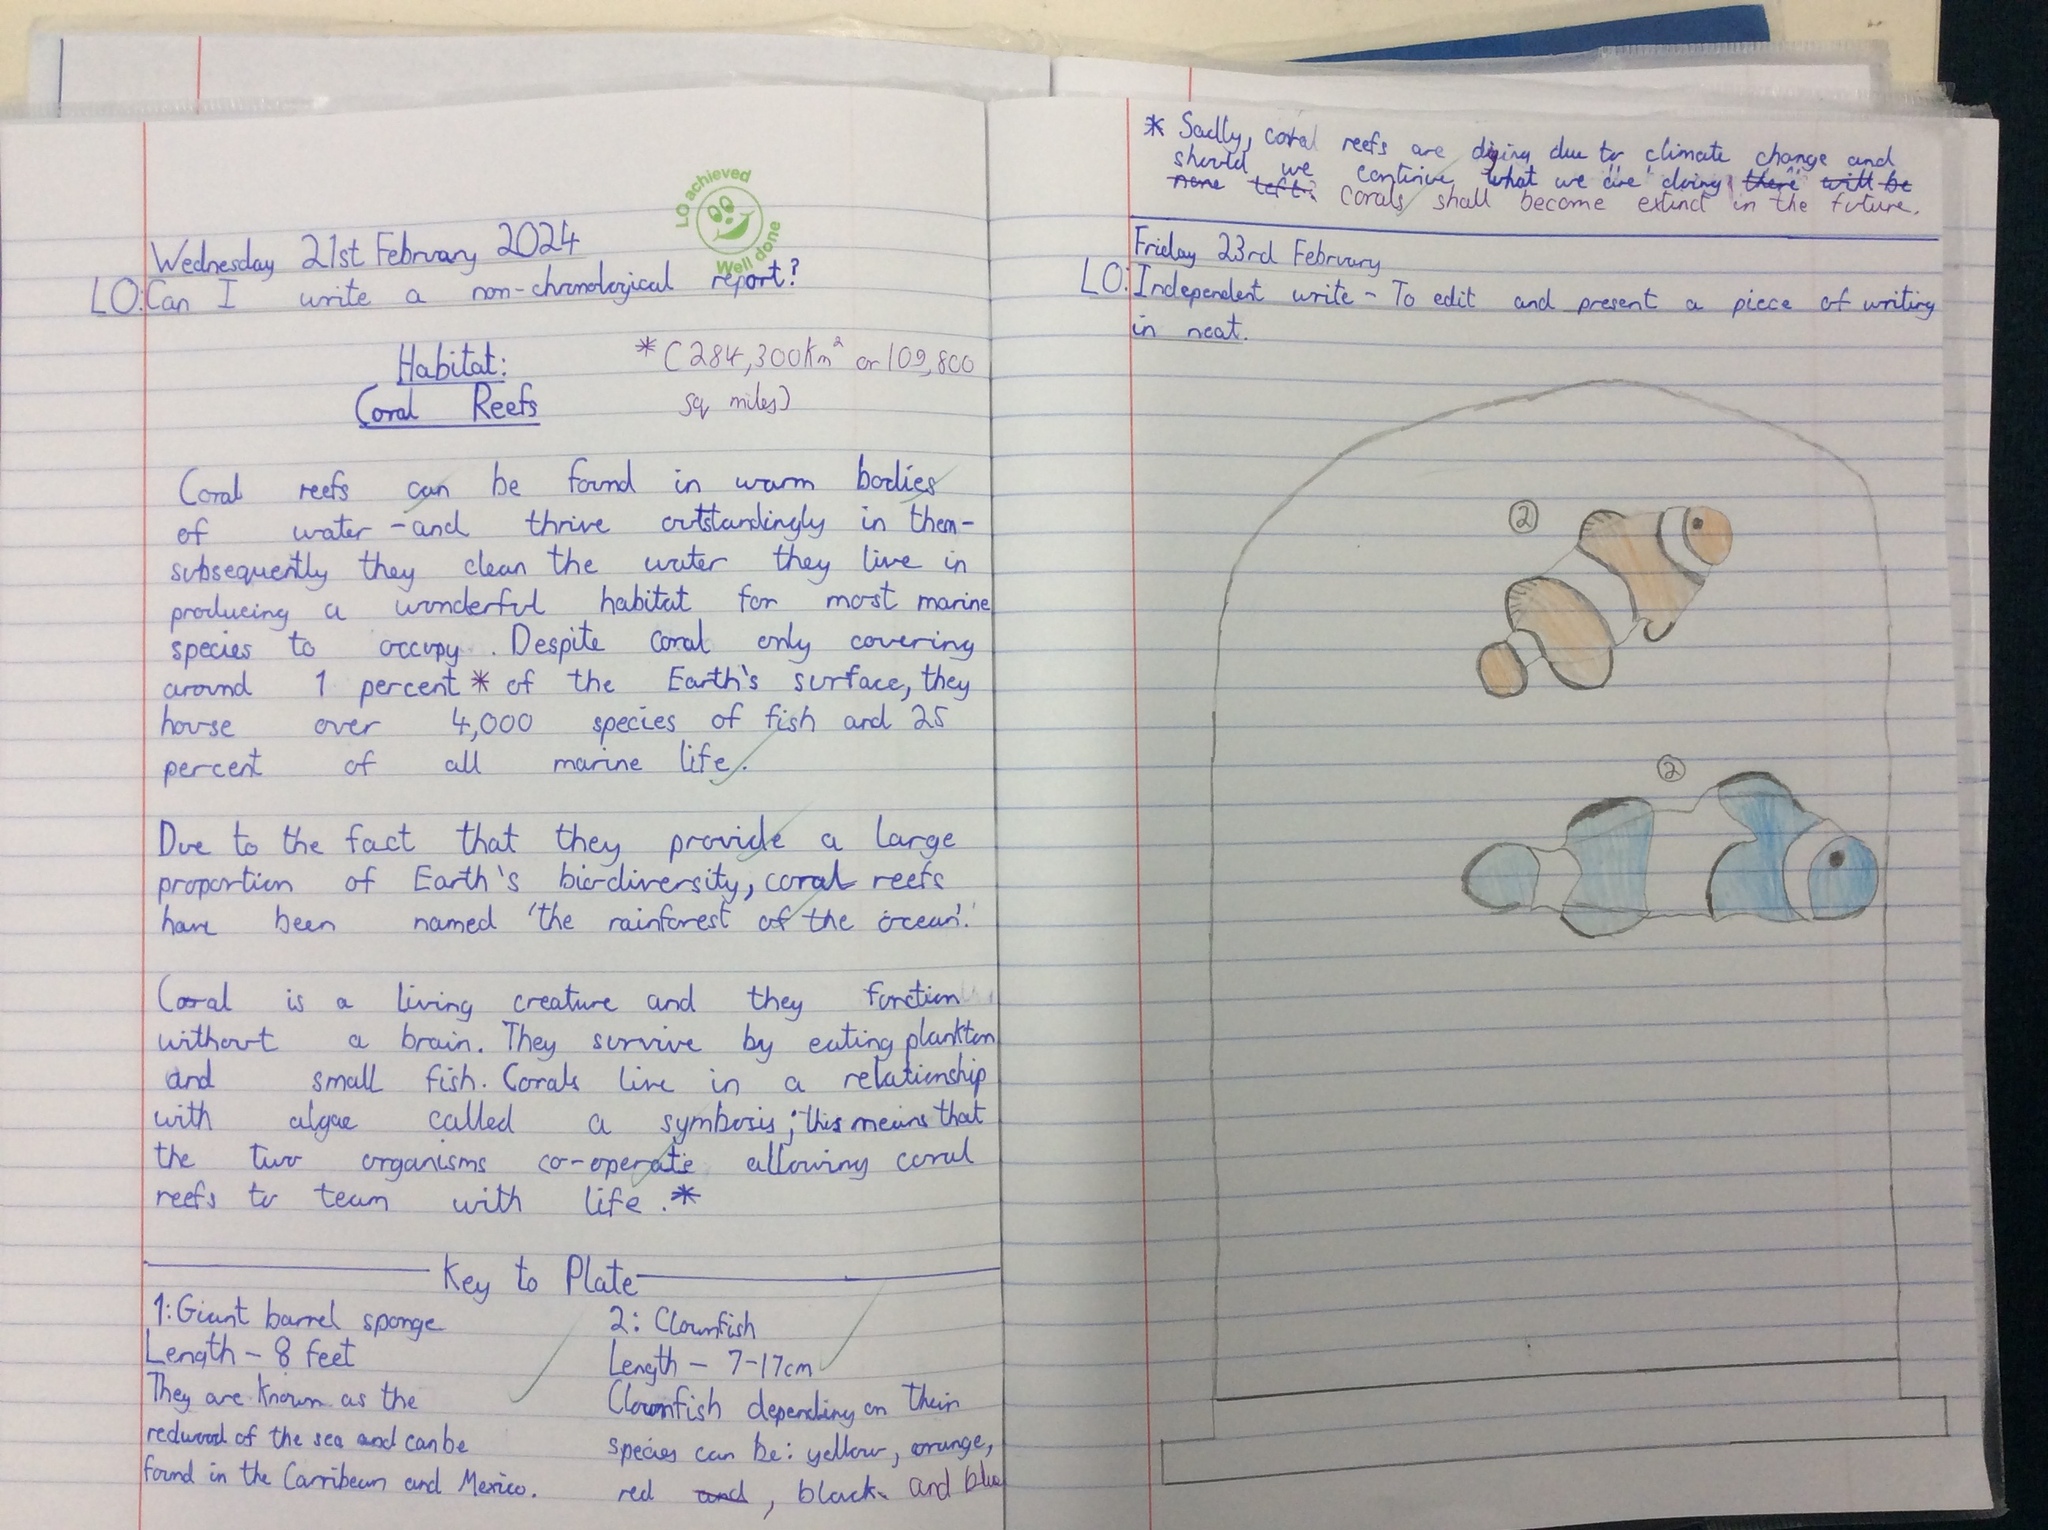 LO achieved
Well done
Wednesday 21st February 2024
LO: Can I write a non-chronological report?
Habitat:
Coral Reefs
* (284,300km² or 109,800
sq miles)
Coral reefs can be found in warm bodies
of water - and thrive outstandingly in them -
subsequently they clean the water they live in
producing a wonderful habitat for most marine
species to occupy. Despite coral only covering
around 1 percent * of the Earth's surface, they
house over 4,000 species of fish and 25
percent of all marine life.
Due to the fact that they provide a large
proportion of Earth's bio-diversity, coral reefs
have been named 'the rainforest of the ocean'.
Coral is a living creature and they function
without a brain. They survive by eating plankton
and small fish. Corals live in a relationship
with algae called a symbosis; this means that
the two organisms co-operate allowing coral
reefs to team with life. *
Key to Plate
1: Giant barrel sponge
Length - 8 feet
They are known as the
redwood of the sea and can be
found in the Carribean and Mexico.
2: Clownfish
Length - 7-17cm
Clownfish depending on their
species can be: yellow, orange,
red and, black and blue
* Sadly, coral reefs are dying due to climate change and
should we continue what we are doing there will be
none left. corals shall become extinct in the future.
Friday 23rd February
LO: Independent write - To edit and present a piece of writing
in neat.
2
2